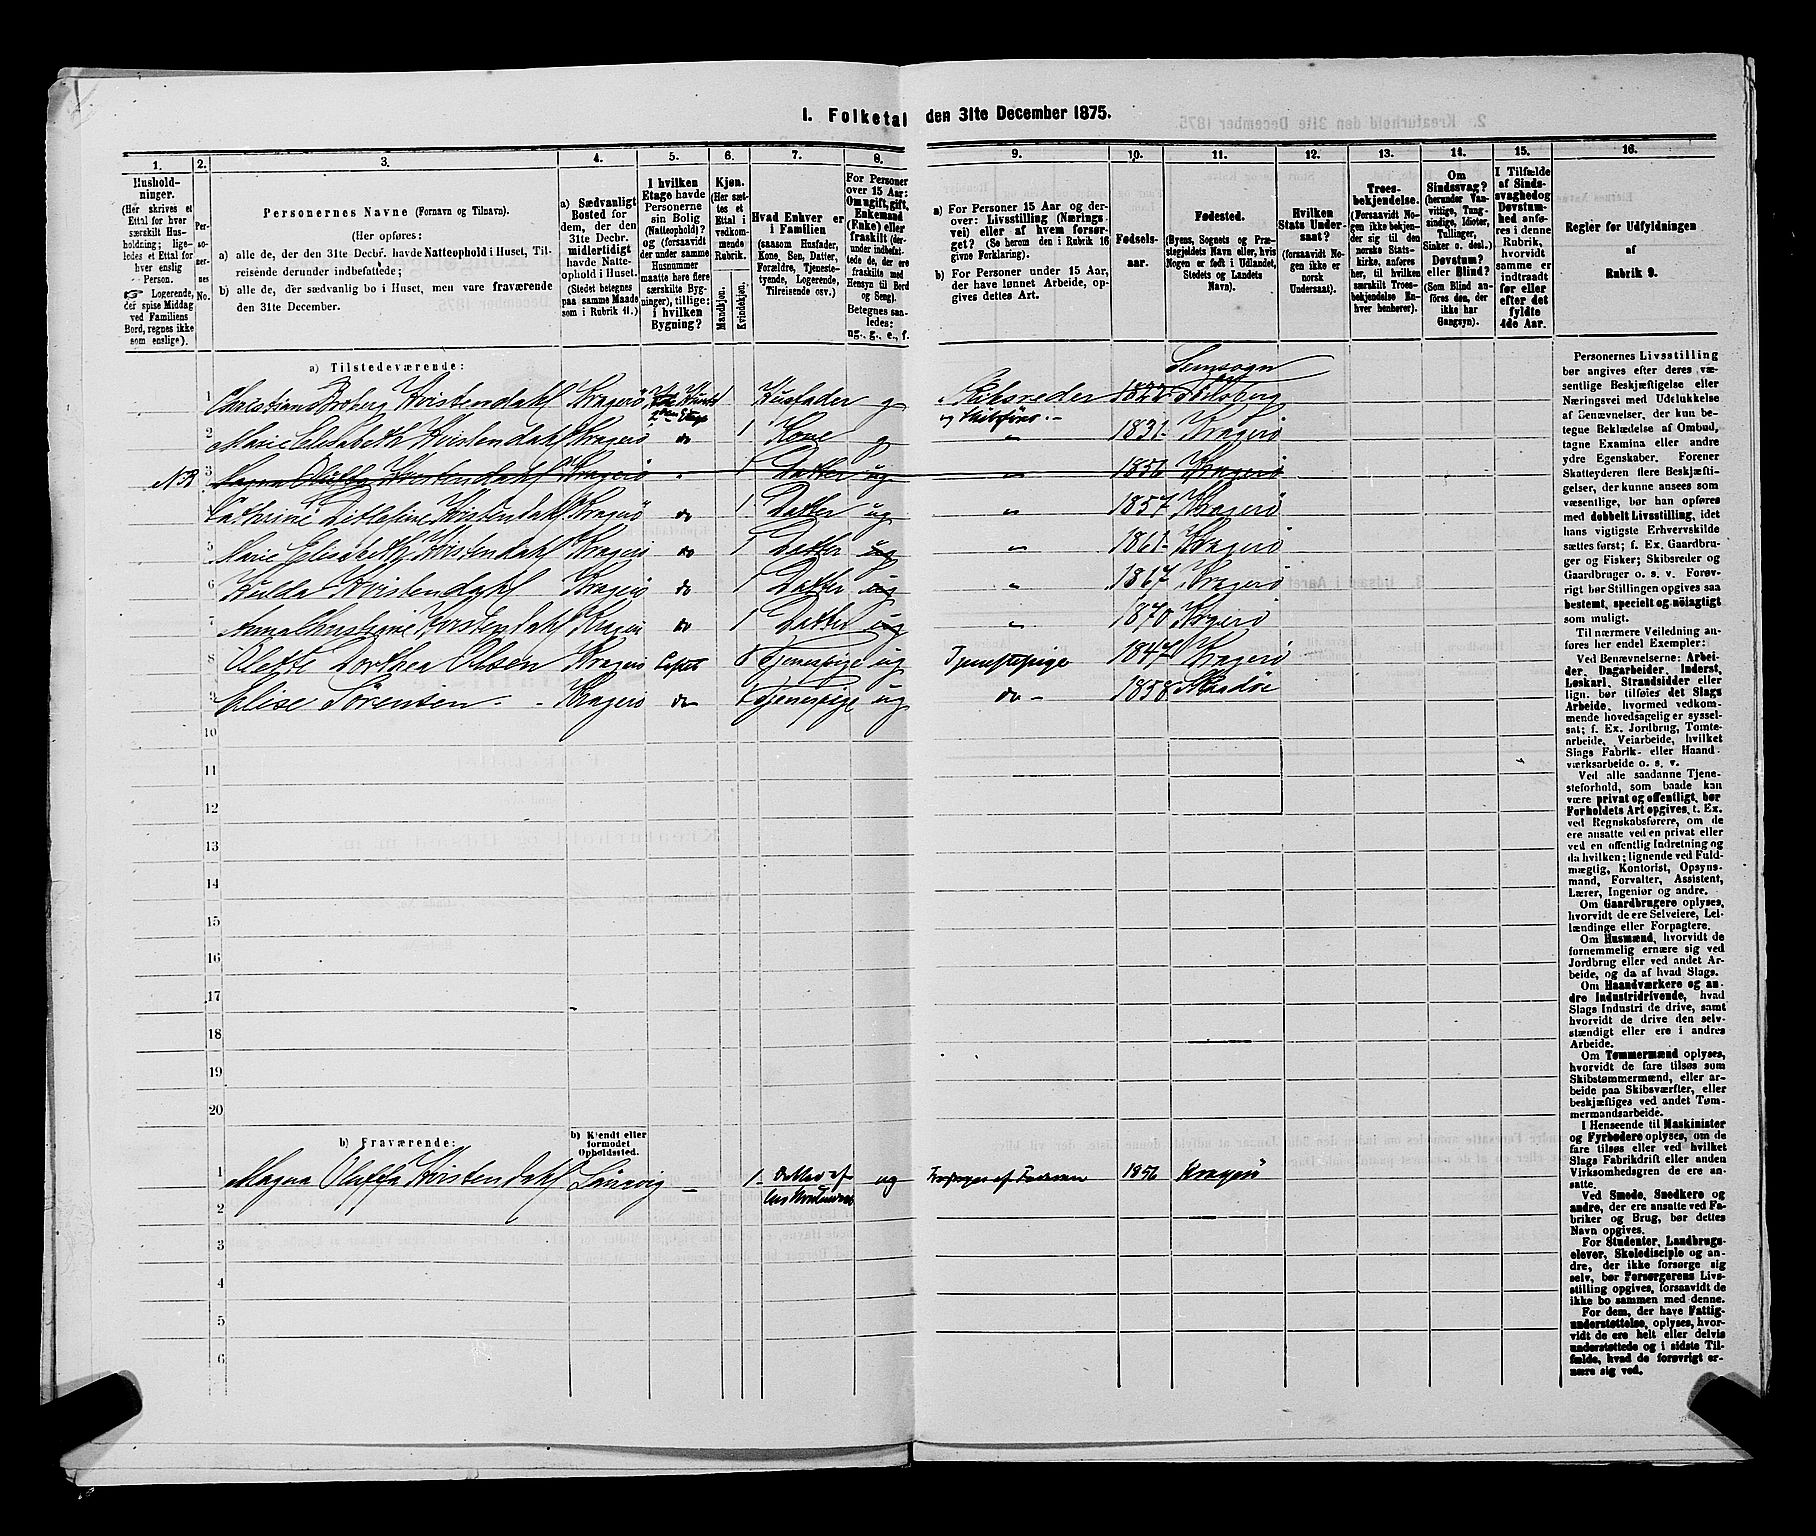 I. Folketal den 31te December 1875.
1. 2. 3. 4. 5. 6. 7. 8. 9. 10. 11. 12. 13. 14. 15. 16.
Hushold-
ninger.
(Her skrives et
Ettal for hver
særskilt Hus-
holdning; lige-
ledes et Ettal for
hver enslig
Person.
☞ Logerende,
der spise Middag
ved Familiens
Bord, regnes ikke
som enslige).
Per-
so-
ner-
nes
No.
Personernes Navne (Fornavn og Tilnavn).
(Her opføres:
a) alle de, der den 31te Decbr. havde Natteophold i Huset, Til-
reisende derunder indbefattede;
b) alle de, der sædvanlig bo i Huset, men vare fraværende
den 31te December.
a) Sædvanligt
Bosted for
dem, der den
31te Decbr.
midlertidigt
havde Natte-
ophold i Huset.
(Stedet betegnes
paa samme Maade
som i Rubrik 11.)
I hvilken
Etage havde
Personerne
sin Bolig
(Natteophold)?
og (forsaavidt
der under samme
Husnummer
maatte høre flere
særskilte Byg-
ninger), tillige:
i hvilken
Bygning?
Kjøn.
(Her sæt-
tes et
Ettal i
vedkom-
mende
Rubrik.
Mandkjøn.
Kvindekjøn.
Hvad Enhver er
i Familien
(saasom Husfader,
Kone, Søn, Datter,
Forældre, Tjeneste-
tyende, Logerende,
Tilreisende osv.)
For Personer
over 15 Aar:
Om ugift, gift,
Enkemand
(Enke) eller
fraskilt (der-
under indbefat-
tede de, der ere
fraskilte med
Hensyn til Bord
og Seng).
Betegnes saa-
ledes:
ug., g., e., f.
a) For Personer 15 Aar og der-
over: Livsstilling (Nærings-
vei) eller af hvem forsør-
get? (Se herom den i Rubrik 16
givne Forklaring).
b) For Personer under 15 Aar,
der have lønnet Arbeide, op-
gives dettes Art.
Fødsels-
aar.
Fødested.
(Byens, Sognets og Præ-
stegjeldets Navn eller, hvis
Nogen er født i Udlandet,
Stedets og Landets
Navn).
Hvilken
Stats Under-
saat?
(forsaavidt No-
gen ikke er
norsk
Undersaat).
Troes-
bekjendelse.
(Forsaavidt No-
gen ikke bekjen-
der sig til den
norske Stats-
kirke, anføres
her, til hvilken
særskilt Troes-
bekjendelse En-
hver henhører).
Om
Sindssvag?
(herunder Van-
vittige, Tung-
sindige, Idioter,
Tullinger,
Sinker o. desl.)
Døvstum?
eller Blind?
(Som Blind an-
føres den, der
ikke har
Gangsyn).
I Tilfælde
af Sinds-
svaghed og
Døvstum-
hed anfø-
res i denne
Rubrik,
hvorvidt
samme er
indtraadt
før eller
efter det
fyldte
4de Aar.
Regler for Udfyldningen
af
Rubrik 9.
a) Tilstedeværende:
Semsogn
1 Christian Broberg Kvistendahl Kragerö 1 Husfader g Skibsreder 1822 Tönsberg
og Skibsförer
2 Marie Elisabeth Kvistendahl Kragerö do 1 Kone g " 1831 Kragerö
NB 3 Magna Oluffa Kvistendahl Kragerö " 1 Datter ug " 1856 Kragerö
4 Cathrine Ditlefine Kvistendahl Kragerö do 1 Datter ug " 1857 Kragerö
5 Marie Elisabeth Kvistendahl Kragerö do 1 Datter ug " 1861 Kragerö
6 Hulda Kvistendahl Kragerö do 1 Datter ug " 1867 Kragerö
7 Anna Christine Kvistendahl Kragerö do 1 Datter ug " 1870 Kragerö
8 Olette Dorthea Olsen Kragerö Loftet 1 Tjenespige ug Tjenestepige 1847 Kragerö
9 Elise Sörensen Kragerö do 1 Tjenespige ug do 1858 Skaadöe
10
11
12
13
14
15
16
17
18
19
20
b) Fraværende:
b) Kjendt eller
formodet
Opholdssted.
1 Magna Oluffa Kvistendahl Laurvig 1 Datter af ug Forsørges af Faderen 1856 Kragerö
2
3
4
5
6
Personernes Livsstilling
bør angives efter deres væ-
sentlige Beskjæftigelse eller
Næringsvei med Udelukkelse
af Benævnelser, der kun be-
tegne Beklædelse af Ombud,
tagne Examina eller andre
ydre Egenskaber. Forener
Skatteyderen flere Beskjæfti-
gelser, der kunne ansees som
væsentlige, bør han opføres
med dobbelt Livsstilling, idet
hans vigtigste Erhvervskilde
sættes først; f. Ex. Gaardbru-
ger og Fisker; Skibsreder og
Gaardbruger o. s. v. Forøv-
rigt bør Stillingen opgives saa
bestemt, specielt og nöiagtigt
som muligt.
Til nærmere Veiledning an-
føres her endel Exempler:
Ved Benævnelserne: Arbei-
der, Dagarbeider, Inderst,
Løskarl, Strandsidder eller
lign. bør tilføies det Slags
Arbeide, hvormed vedkom-
mende hovedsagelig er syssel-
sat; f. Ex. Jordbrug, Tomte-
arbeide, Veiarbeide, hvilket
Slags Fabrik- eller Haand-
værksarbeide o. s. v.
Ved alle saadanne Tjene-
steforhold, som baade kan
være privat og offentligt, bør
Forholdets Art opgives, t. Ex.
ved Regnskabsførere, om de
ere ansatte ved en privat eller
ved en offentlig Indretning og
da hvilken; lignende ved Fuld-
mægtig, Kontorist, Opsyns-
mand, Forvalter, Assistent,
Lærer, Ingeniør og andre.
Om Gaardbrugere oplyses,
hvorvidt de ere Selveiere, Lei-
lændinge eller Forpagtere.
Om Husmænd, hvorvidt de
fornemmelig ernære sig ved
Jordbrug eller ved andet Ar-
beide, og da af hvad Slags.
Om Haandværkere og an-
dre Industridrivende, hvad
Slags Industri de drive, samt
hvorvidt de drive den selv-
stændigt eller ere i andres
Arbeide.
Om Tømmermænd oplyses,
hvorvidt de fare tilsøs som
Skibstømmermænd, eller ar-
beide paa Skibsværfter, eller
beskjæftiges ved andet Tøm-
mermandsarbeide.
I Henseende til Maskinister
og Fyrbødere oplyses, om de
fare tilsøs eller ved hvilket
Slags Fabrikdrift eller anden
Virksomhedsgren de ere an-
satte.
Ved Smede, Snedkere og
andre, der ere ansatte ved Fa-
briker og Brug, bør dettes
Navn opgives.
For Studenter, Landbrugs-
elever, Skoledisciple og an-
dre, der ikke forsørge sig
selv, bør Forsørgerens Livs-
stilling opgives, forsaavidt de
ikke bo sammen med denne.
For dem, der have Fattig-
understøttelse, oplyses, hvor-
vidt de ere helt eller delvis
understøttede og i sidste Til-
fælde, hvad de forøvrigt er-
nære sig ved.